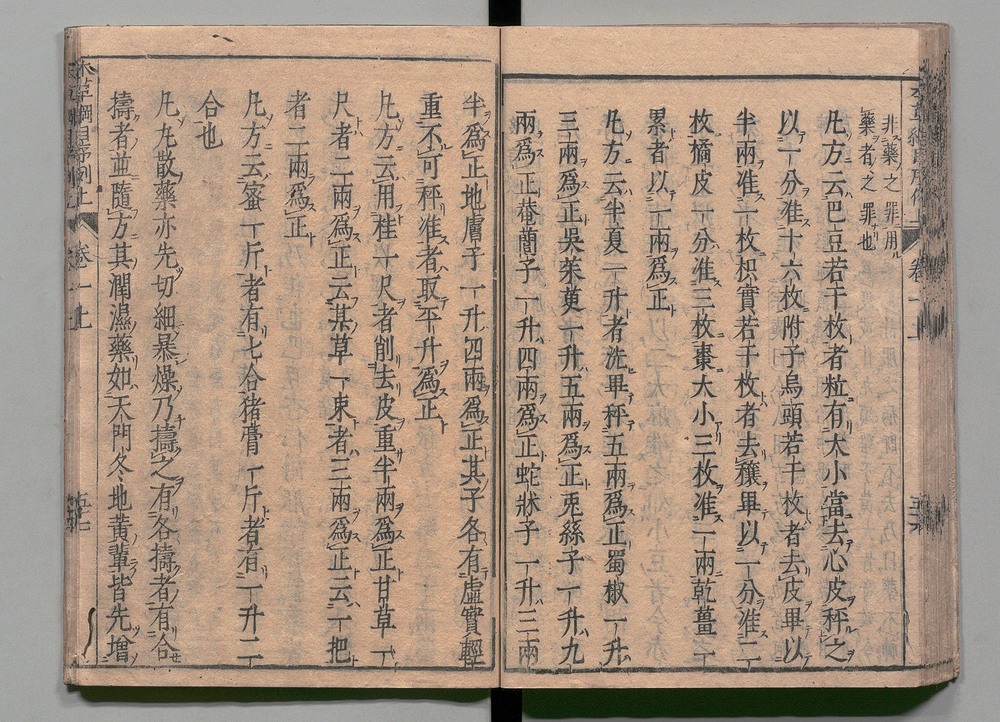 非藥之罪用
藥者之罪也
凡方云巴豆若干枚者粒有大小當去心皮秤之
以一分准十六枚附子烏頭若干枚者去皮畢以
半兩准一枚枳實若干枚者去穰畢以一分准二
枚橘皮一分准三枚棗大小三枚准一兩乾薑一
累者以一兩爲正
凡方云半夏一升者洗畢秤五兩爲正蜀椒一升
三兩爲正吳茱萸一升五兩爲正兎絲子一升九
兩爲正菴䕡子一升四兩爲正蛇牀子一升三兩
半爲正地膚子一升四兩爲正其子各有虛實輕
重不可秤准者取平升爲正
凡方云用桂一尺者削去皮重半兩爲正甘草一
尺者二兩爲正云某草一束者三兩爲正云一把
者二兩爲正
凡方云蜜一斤者有七合猪膏一斤者有一升二
合也
凡散藥亦先切細暴燥乃擣之有各擣者有合
擣者並隨方其潤濕藥如天門冬地黃輩皆先增
本草綱目序例上 卷一上